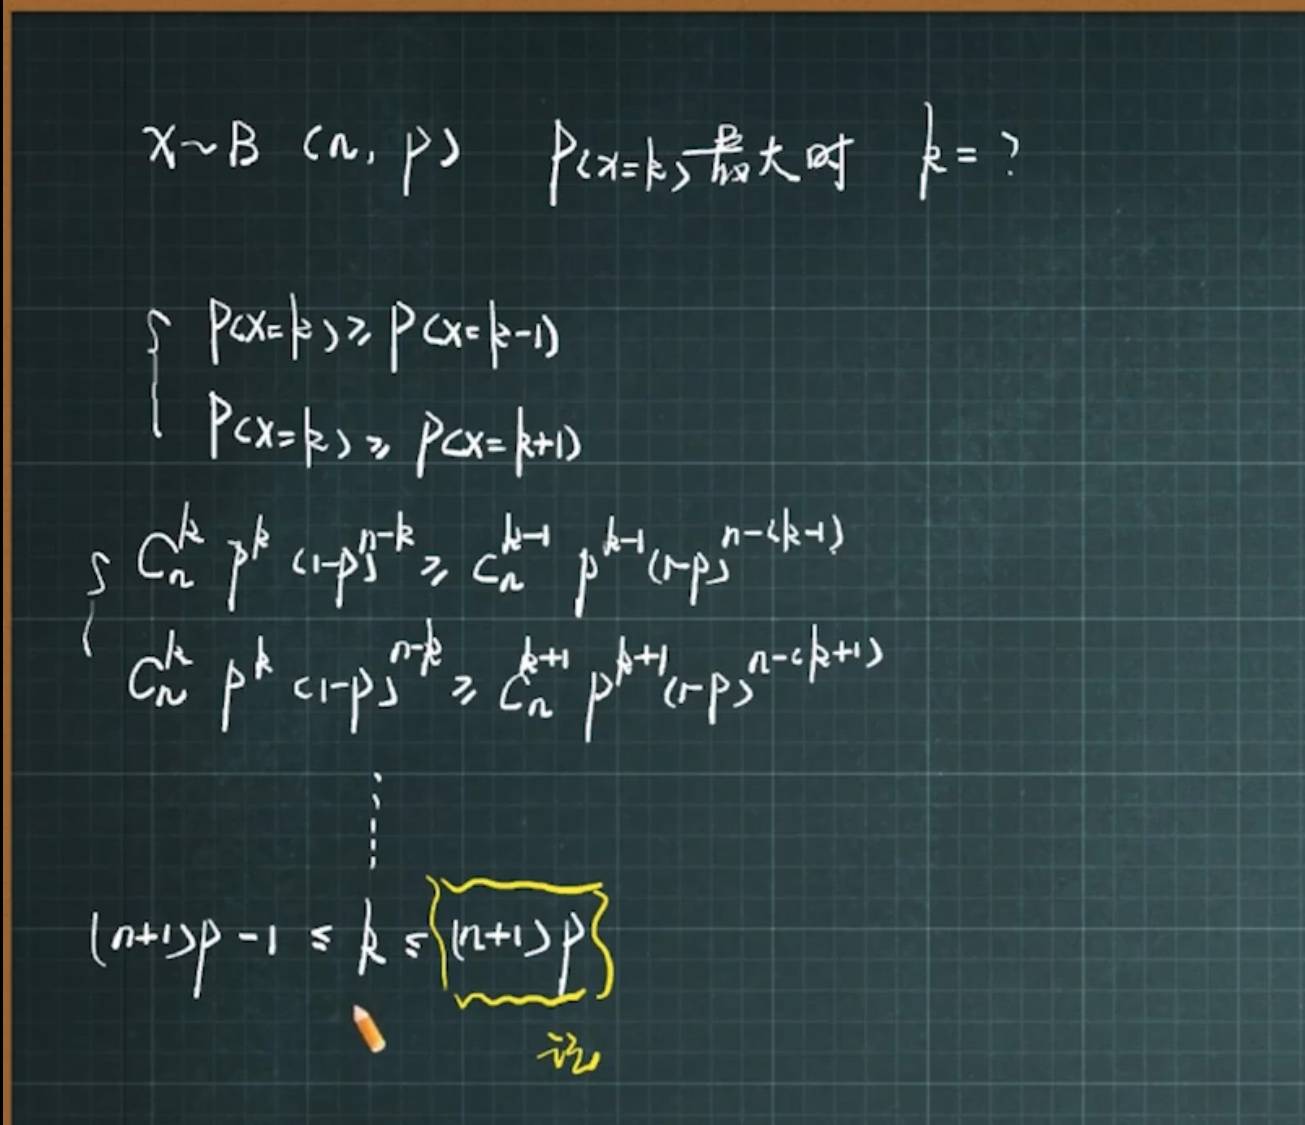 X~B (n, p) P(x=k)最大时 k=?
P(X=k)≥P(X=k-1)
P(X=k)≥P(X=k+1)
C_n^k p^k (1-p)^{n-k} ≥ C_n^{k-1} p^{k-1} (1-p)^{n-(k-1)}
C_n^k p^k (1-p)^{n-k} ≥ C_n^{k+1} p^{k+1} (1-p)^{n-(k+1)}
(n+1)p-1 ≤ k ≤ (n+1)p
记